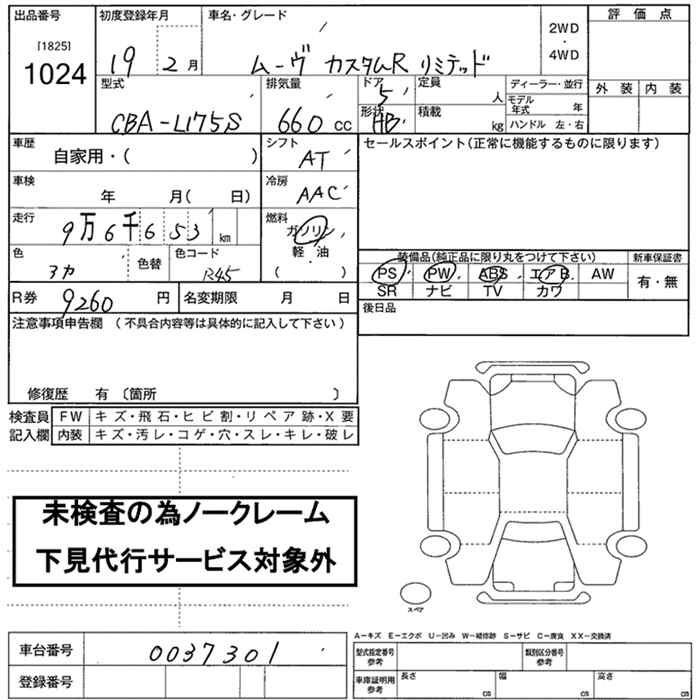 出品番号 初度登録年月 車名・グレード 2WD・4WD 評価点
[1825]
1024 19 2月 ムーヴ カスタムR リミテッド 外装 内装
型式 排気量 ドア 定員 ディーラー・並行
CBA-L175S 660cc 5 人 モデル年式 年
形状 積載 ハンドル 左・右
HB kg
車歴 シフト セールスポイント(正常に機能するものに限ります)
自家用・( ) AT
車検 冷房
年 月( 日) AAC
走行 燃料
9万6千653km ガソリン
軽・油
( )
色 色替 色コード 装備品(純正品に限り丸をつけて下さい) 新車保証書
B45 PS PW ABS エアB AW 有・無
SR ナビ TV カワ
R券 9260円 名変期限 月 日 後日品
注意事項申告欄 (不具合内容等は具体的に記入して下さい)
修復歴 有 〔箇所 〕
検査員 FW キズ・飛石・ヒビ割・リペア跡・X要
記入欄 内装 キズ・汚レ・コゲ・穴・スレ・キレ・破レ
未検査の為ノークレーム
下見代行サービス対象外
スペア
A−キズ E−エクボ U−凹み W−補修跡 S−サビ C−腐食 XX−交換済
車台番号 0037301 型式指定番号参考 類別区分番号参考
登録番号 車庫証明用参考 長さ cm 幅 cm 高さ cm